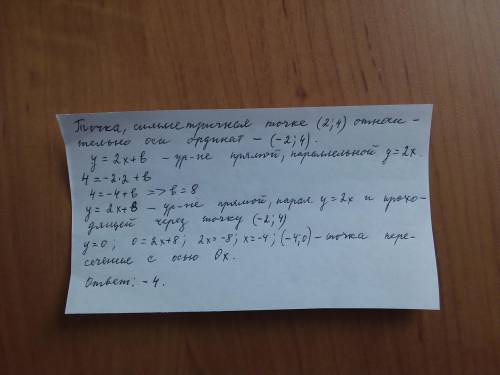 Точка, симметричная точке (2;4) относи-
тельно оси ординат – (-2;4).
y = 2x+b – ур-ие прямой, параллельной y=2x.
4=-2·2+b
4=-4+b => b=8
y=2x+8 – ур-ие прямой, парал. y=2x и прохо-
дящей через точку (-2;4)
y=0; 0=2x+8; 2x=-8; x=-4; (-4;0) – точка пере-
сечения с осью Ox.
Ответ: -4.